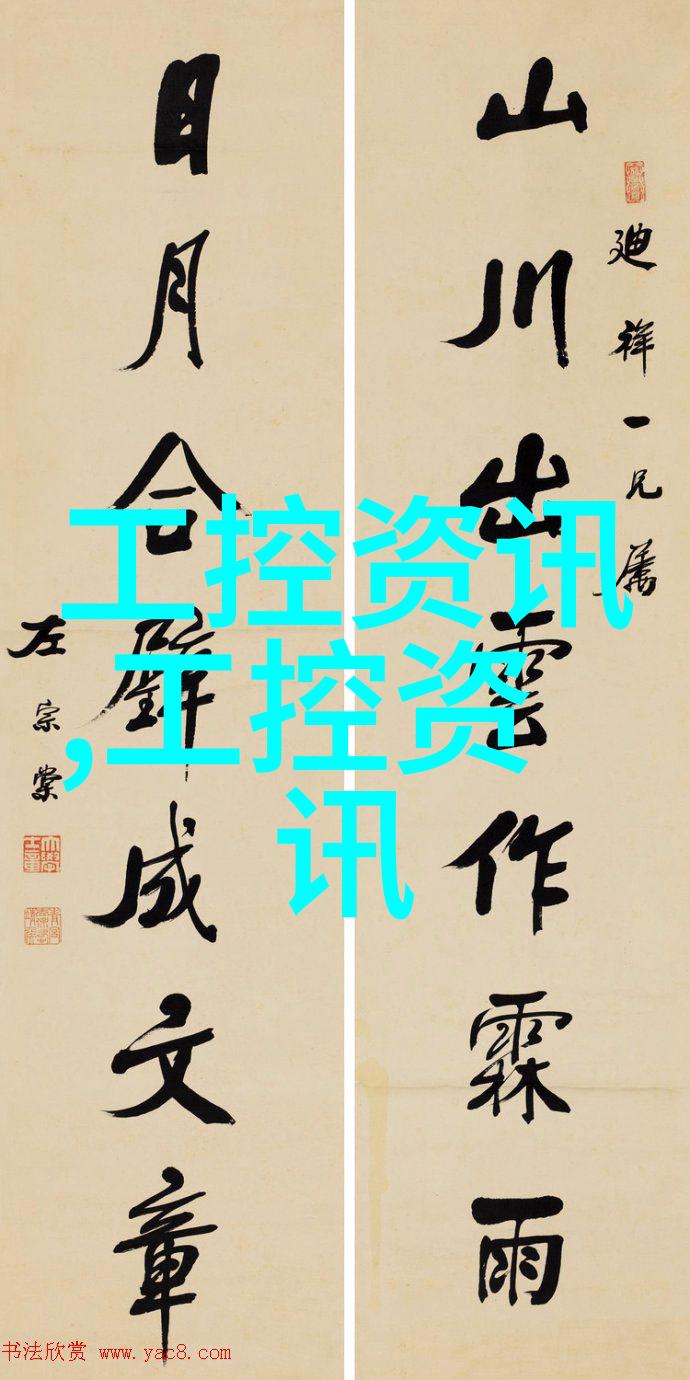 廸祥一兄属
山川出雲作霖雨
日月合璧成文章
左宗棠
工控资讯
,工控资
讯
书法欣赏 www.yac8.com